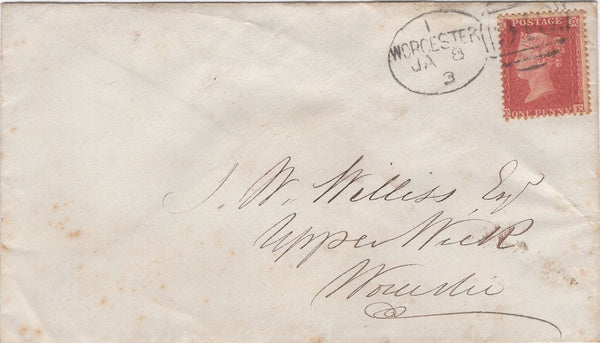 1
WORCESTER
JA 8
3
POSTAGE
ONE PENNY
E
J. W. Williss Esq
Upper Wick
Worcester